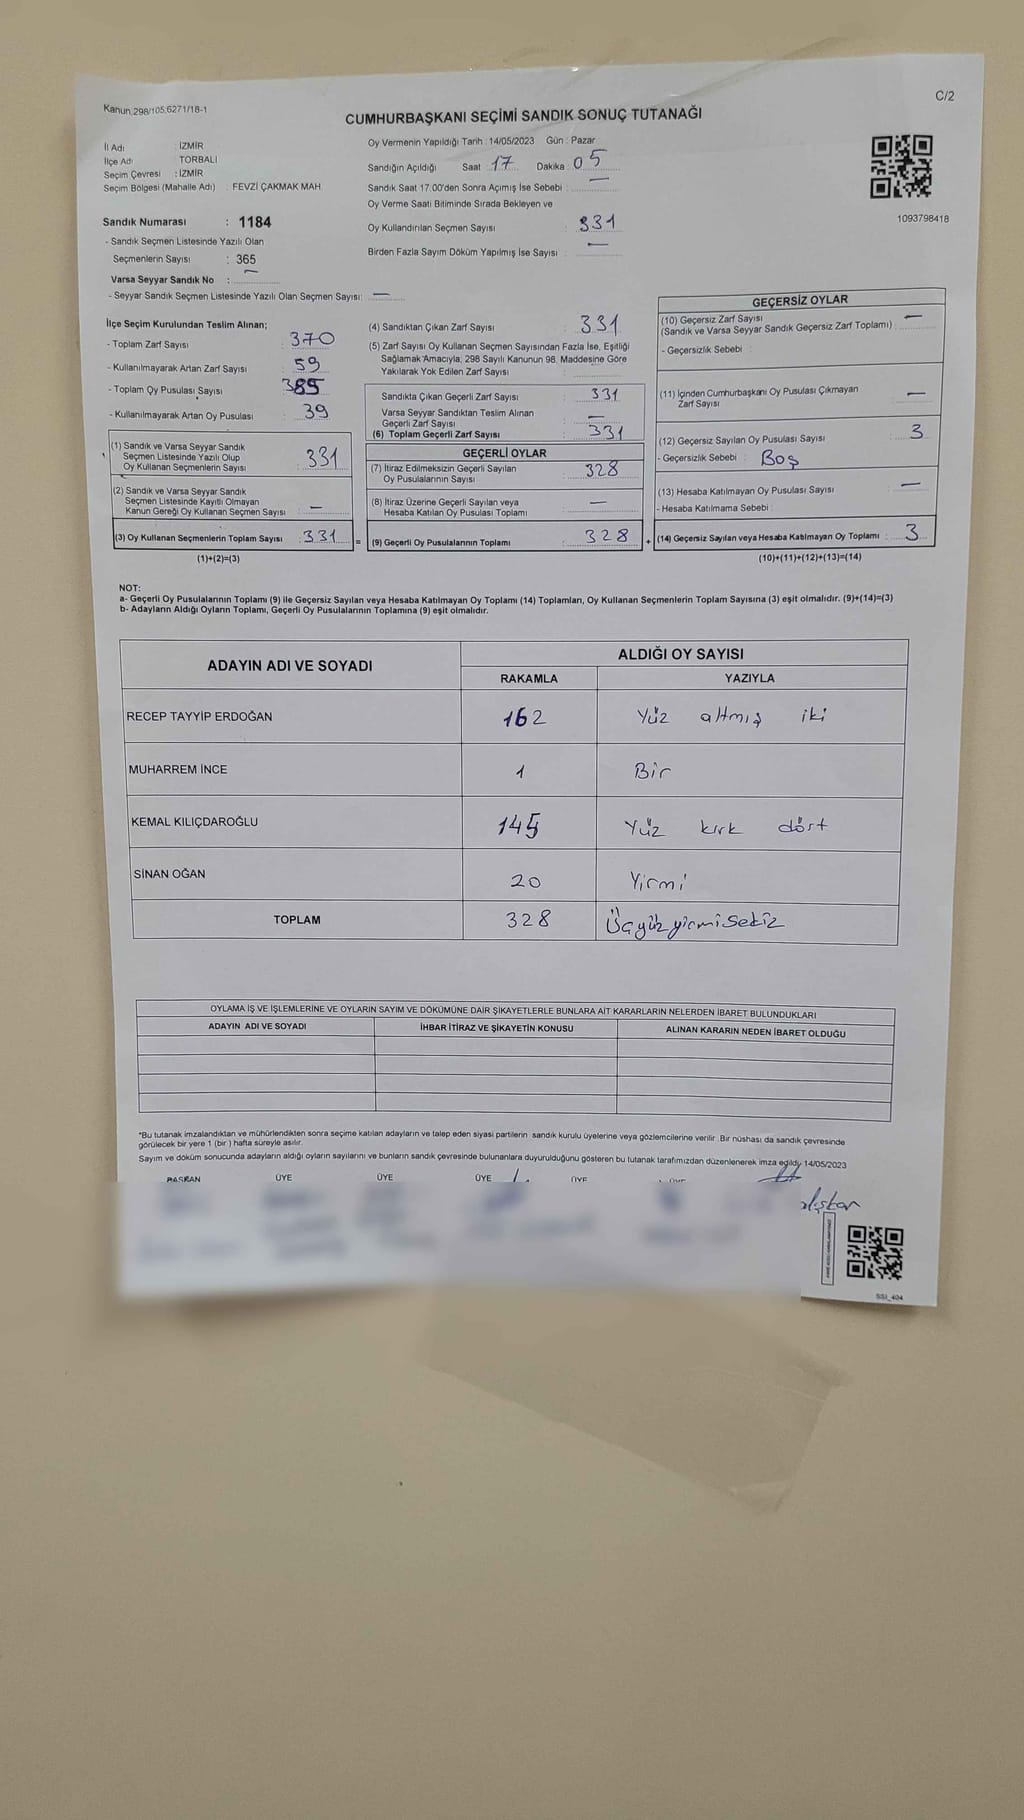 Kanun 298/105;6271/18-1
C/2
CUMHURBAŞKANI SEÇİMİ SANDIK SONUÇ TUTANAĞI
İl Adı : İZMİR
İlçe Adı : TORBALI
Seçim Çevresi : İZMİR
Seçim Bölgesi (Mahalle Adı) : FEVZİ ÇAKMAK MAH.
Sandık Numarası : 1184
- Sandık Seçmen Listesinde Yazılı Olan
Seçmenlerin Sayısı : 365
Varsa Seyyar Sandık No : —
- Seyyar Sandık Seçmen Listesinde Yazılı Olan Seçmen Sayısı: —
Oy Vermenin Yapıldığı Tarih : 14/05/2023 Gün : Pazar
Sandığın Açıldığı Saat 17 Dakika : 05
Sandık Saat 17:00'den Sonra Açımış İse Sebebi : —
Oy Verme Saati Bitiminde Sırada Bekleyen ve
Oy Kullandırılan Seçmen Sayısı : 331
Birden Fazla Sayım Döküm Yapılmış İse Sayısı : —
1093798418
İlçe Seçim Kurulundan Teslim Alınan;
- Toplam Zarf Sayısı : 370
- Kullanılmayarak Artan Zarf Sayısı : 59
- Toplam Oy Pusulası Sayısı
- Kullanılmayarak Artan Oy Pusulası : 39
(1) Sandık ve Varsa Seyyar Sandık
Seçmen Listesinde Yazılı Olup
Oy Kullanan Seçmenlerin Sayısı : 331
(2) Sandık ve Varsa Seyyar Sandık
Seçmen Listesinde Kayıtlı Olmayan
Kanun Gereği Oy Kullanan Seçmen Sayısı : —
(3) Oy Kullanan Seçmenlerin Toplam Sayısı : 331 =
(1)+(2)=(3)
(4) Sandıktan Çıkan Zarf Sayısı : 331
(5) Zarf Sayısı Oy Kullanan Seçmen Sayısından Fazla İse, Eşitliği
Sağlamak Amacıyla; 298 Sayılı Kanunun 98. Maddesine Göre
Yakılarak Yok Edilen Zarf Sayısı :
Sandıkta Çıkan Geçerli Zarf Sayısı : 331
Varsa Seyyar Sandıktan Teslim Alınan
Geçerli Zarf Sayısı : —
(6) Toplam Geçerli Zarf Sayısı : 331
GEÇERLİ OYLAR
(7) İtiraz Edilmeksizin Geçerli Sayılan
Oy Pusulalarının Sayısı : 328
(8) İtiraz Üzerine Geçerli Sayılan veya
Hesaba Katılan Oy Pusulası Toplamı : —
(9) Geçerli Oy Pusulalarının Toplamı : 328 +
GEÇERSİZ OYLAR
(10) Geçersiz Zarf Sayısı
(Sandık ve Varsa Seyyar Sandık Geçersiz Zarf Toplamı) : —
- Geçersizlik Sebebi :
(11) İçinden Cumhurbaşkanı Oy Pusulası Çıkmayan
Zarf Sayısı : —
(12) Geçersiz Sayılan Oy Pusulası Sayısı : 3
- Geçersizlik Sebebi : Boş
(13) Hesaba Katılmayan Oy Pusulası Sayısı : —
- Hesaba Katılmama Sebebi :
(14) Geçersiz Sayılan veya Hesaba Katılmayan Oy Toplamı : 3
(10)+(11)+(12)+(13)=(14)
NOT:
a- Geçerli Oy Pusulalarının Toplamı (9) ile Geçersiz Sayılan veya Hesaba Katılmayan Oy Toplamı (14) Toplamları, Oy Kullanan Seçmenlerin Toplam Sayısına (3) eşit olmalıdır. (9)+(14)=(3)
b- Adayların Aldığı Oyların Toplamı, Geçerli Oy Pusulalarının Toplamına (9) eşit olmalıdır.
ADAYIN ADI VE SOYADI ALDIĞI OY SAYISI
RAKAMLA YAZIYLA
RECEP TAYYİP ERDOĞAN 162 Yüz altmış iki
MUHARREM İNCE 1 Bir
KEMAL KILIÇDAROĞLU 145 Yüz kırk dört
SİNAN OĞAN 20 Yirmi
TOPLAM 328 Üçyüzyirmisekiz
OYLAMA İŞ VE İŞLEMLERİNE VE OYLARIN SAYIM VE DÖKÜMÜNE DAİR ŞİKAYETLERLE BUNLARA AİT KARARLARIN NELERDEN İBARET BULUNDUKLARI
ADAYIN ADI VE SOYADI İHBAR İTİRAZ VE ŞİKAYETİN KONUSU ALINAN KARARIN NEDEN İBARET OLDUĞU
*Bu tutanak imzalandıktan ve mühürlendikten sonra seçime katılan adayların ve talep eden siyasi partilerin sandık kurulu üyelerine veya gözlemcilerine verilir. Bir nüshası da sandık çevresinde
görülecek bir yere 1 (bir ) hafta süreyle asılır.
Sayım ve döküm sonucunda adayların aldığı oyların sayılarını ve bunların sandık çevresinde bulunanlara duyurulduğunu gösteren bu tutanak tarafımızdan düzenlenerek imza edildi. 14/05/2023
BAŞKAN ÜYE ÜYE ÜYE ÜYE ÜYE
SSI_404